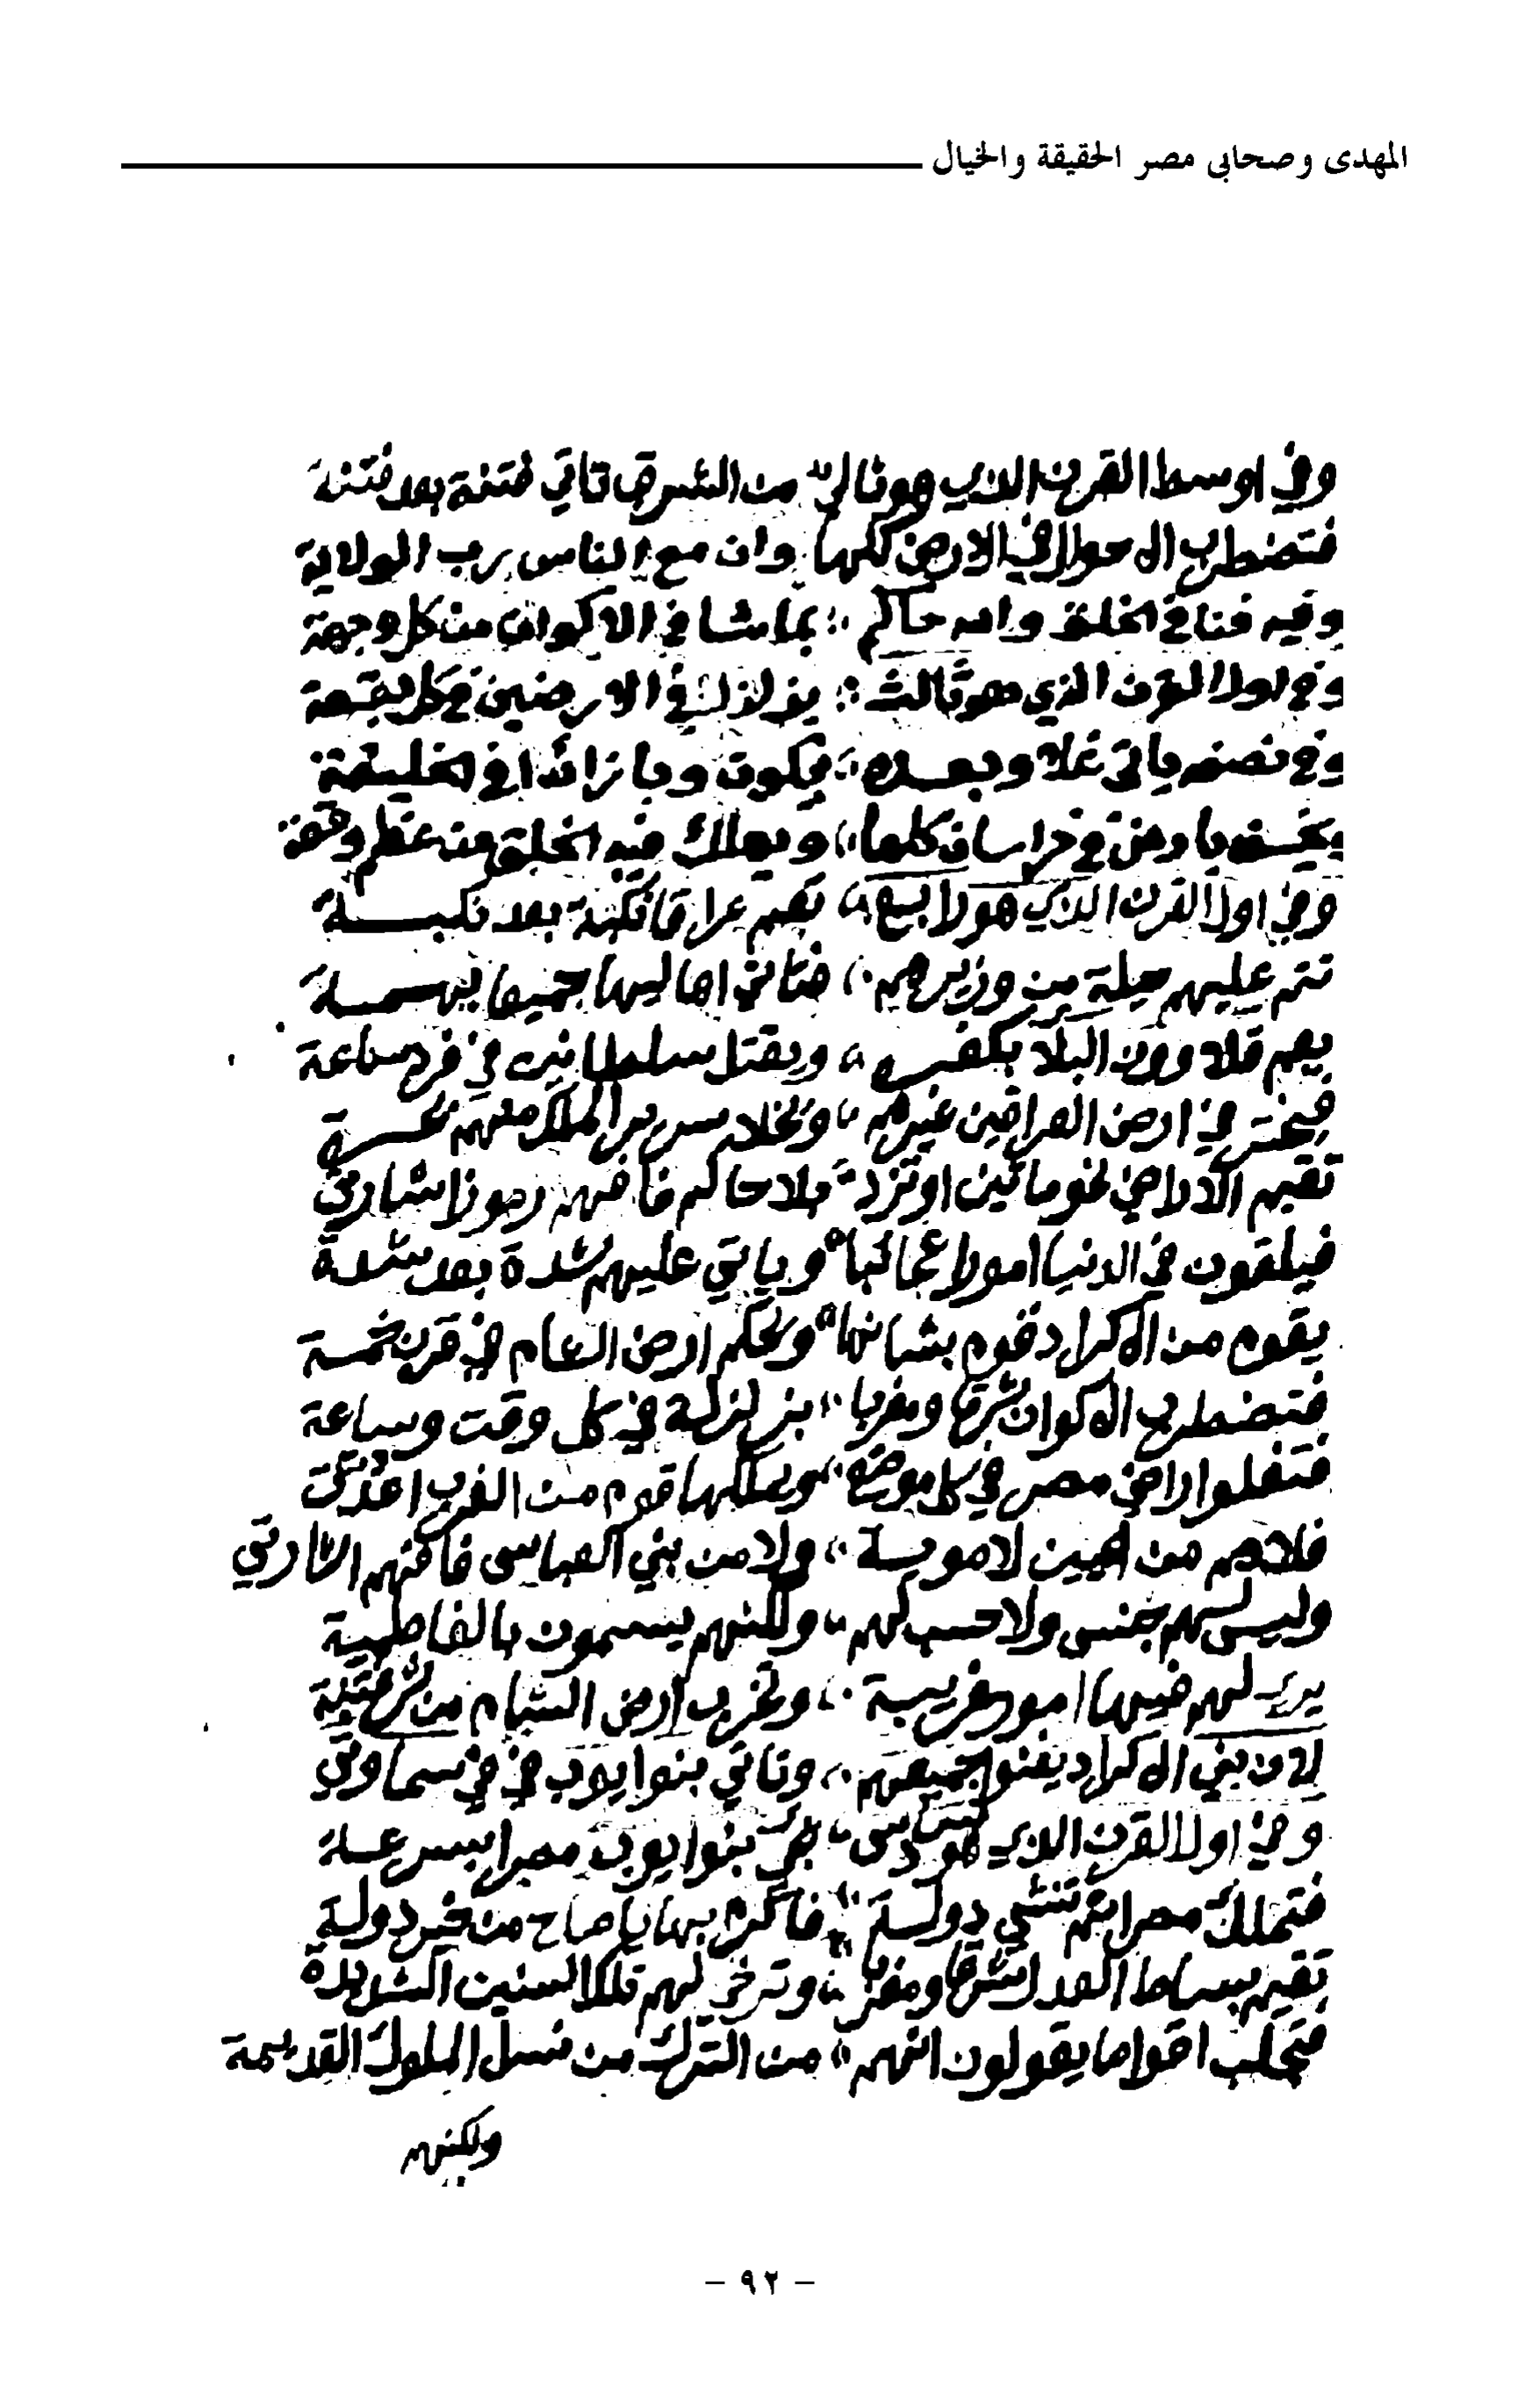 المهدى وصحابى مصر الحقيقة والخيال
وفي اوسط القرن الذي هو ثاني من الشرق تاتي فتنة بعد فتنة
فتضطرب الاحوال في الارض كلها وان مع الناس رب الولاية
وفيه فنا في الخلق والله حاكم بما شا في الاكوان من كل وجهة
وفي اول القرن الذي هو ثالث يزلزل في الارضين في كل بقعة
وفي نصفه ياتي غلا وبعده يكون وبا زائدا في الخليقة
ويخسف بارض في خراسان كلها ويهلك فيه الخلق من عظم وقعة
وفي اول القرن الذي هو رابع تعم عراقا نكبة بعد نكبة
تتم عليهم حيلة من وزيرهم اهاليها جميعا بسرعة
البلاد بكفره ويقتل سلطانين في فرد ساعة
في ارض العراقين غيرهم سرير الملك منهم
تقيم الاراضي نحو مائين او تزد بلا حاكم فافهم رموز اشارتي
فيلقون في الدنيا امورا عجائبا وياتي عليهم شدة بعد شدة
يقوم من الاكراد قوم بشانها ويحكم ارض الشام في قرن خمسة
فتضطرب الاكوان شرقا ومغربا بزلزلة في كل وقت وساعة
اراضي مصر في كل موضع ويملكها قوم من الغرب
فلا هم من لاموية ولا من بني العباس فافهم اشارتي
وليس لهم جنس ولا حسب لهم ولكنهم يسمون بالفاطمية
يرى لهم فيها امور غريبة وتخرب ارض الشام من
لان بني الاكراد يفنوا جميعهم وتاتي بنوا ايوب في
وفي اول القرن الذي هو سادس بنوا ايوب مصرا بسرعة
فتملك مصرا ثم تنشي دولة فاكرم بها يا صاح من خير دولة
تقيم بساط العدل شرقا ومغربا لهم تلك السنين الشديدة
فتجلب اقواما يقولون انهم من الترك من نسل الملوك القديمة
ولكنهم
- ٩٢ -